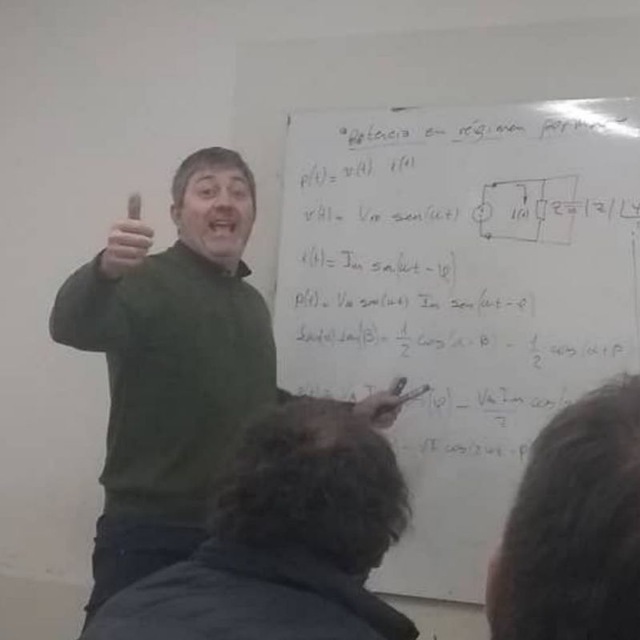 Potencia en régimen
p(t) = v(t) i(t)
v(t) = Vm sen(ωt)
i(t)
Z = |Z|
i(t) = Im sen(ωt - φ)
p(t) = Vm sen(ωt) Im sen(ωt - φ)
sen(α) sen(β) = 1/2 cos(α - β) - 1/2 cos(α + β
(φ) - Vm Im/2 cos(
cos(2ωt - φ